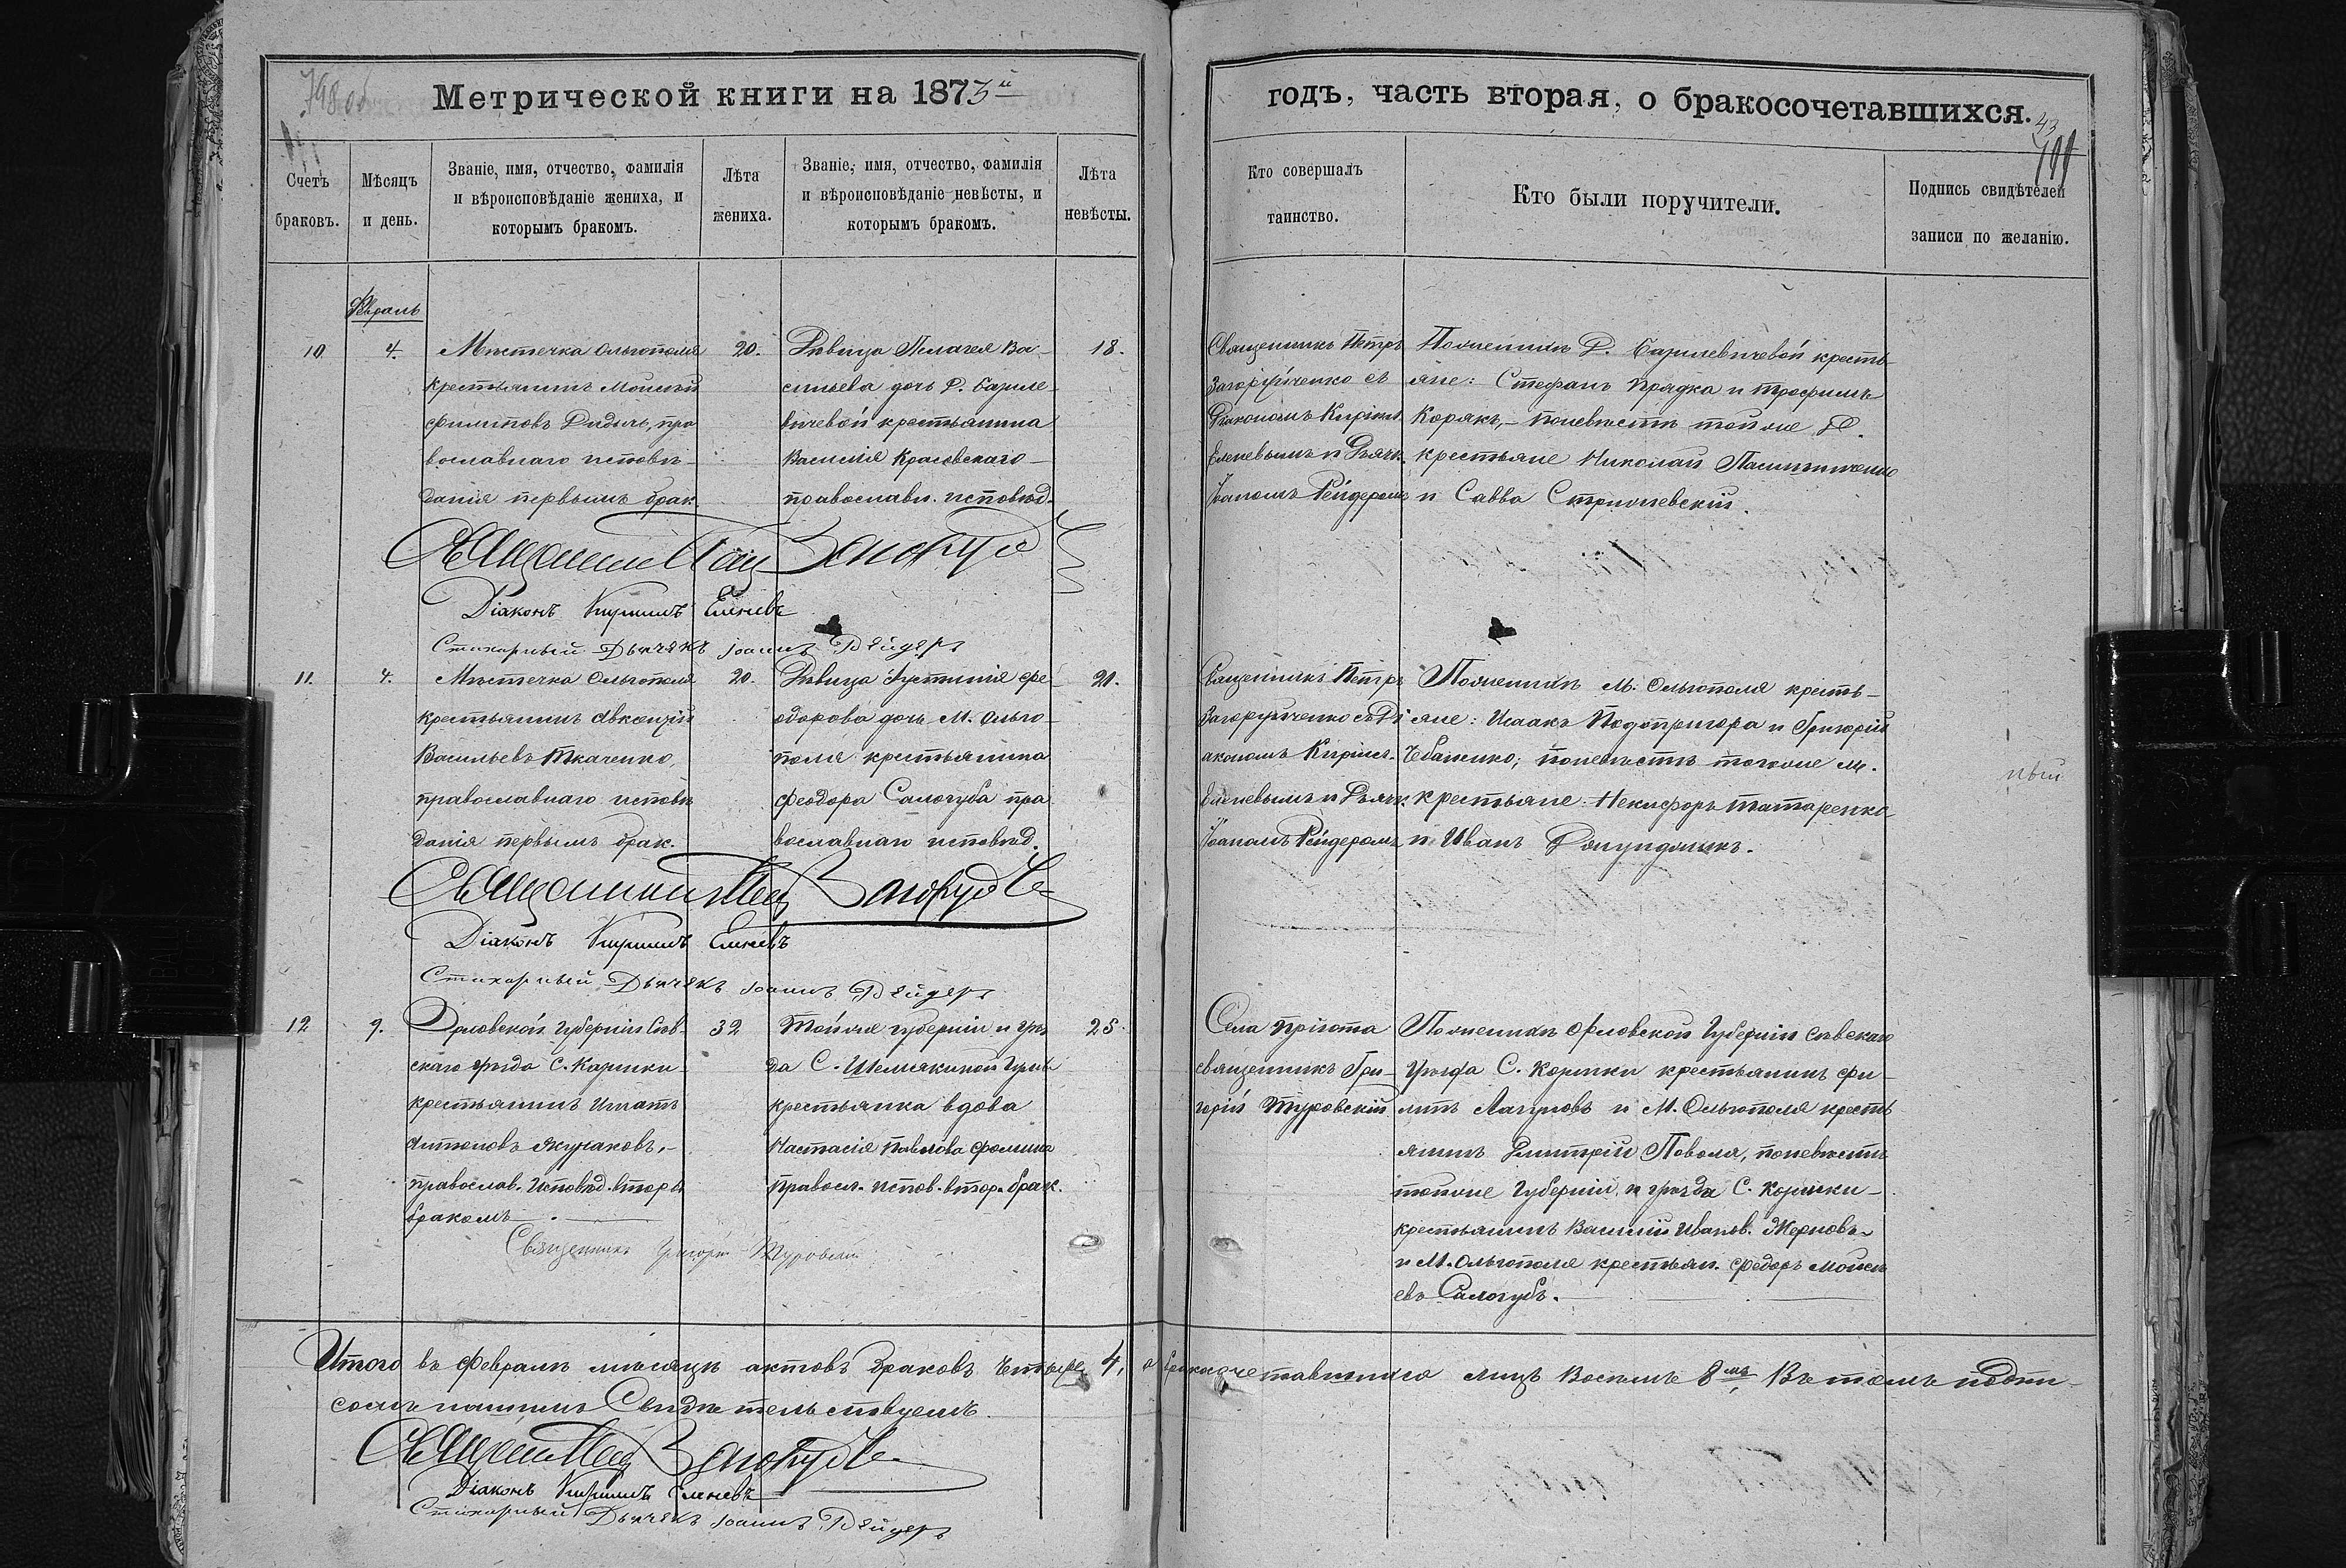 798 об
Метрической книги на 1873й
годъ, часть вторая, о бракосочетавшихся.
43
Счетъ браковъ.
Мѣсяцъ и день.
Званіе, имя, отчество, фамилія
и вѣроисповѣданіе жениха, и
которымъ бракомъ.
Лѣта жениха.
Званіе, имя, отчество, фамилія
и вѣроисповѣданіе невѣсты, и
которымъ бракомъ.
Лѣта невѣсты.
Кто совершалъ таинство.
Кто были поручители.
Подпись свидѣтелей
записи по желанію.
Февраль
10
4.
Мѣстечка Ольгополя
крестьянинъ Моисей
Филиповъ Дидычъ, пра
вославнаго исповѣ-
данія первымъ брак.
20.
Дѣвица Пелагея Ва-
сильева дочь Д. Базиле
вичевой крестьянина
Василія Красовскаго
православн. исповѣд.
18.
Священникъ Петръ
съ
Діакономъ Кирил.
Еленевымъ и Дьячк.
Іоаномъ Рейдеромъ
По женихѣ Д. Базилевичевой кресть
яне: Стефанъ Прядка и Трофимъ
Корякъ, – по невѣстѣ той же Д.
крестьяне Николай
и Савва Стрижевскій.
Діаконъ Кирилъ Еленевъ
Стихарный Дьячекъ Іоаннъ Рейдеръ
11.
4.
Мѣстечка Ольгополя
крестьянинъ Авксентій
Васильевъ Ткаченко,
православнаго исповѣ
данія первымъ брак.
20.
Дѣвица Іустинія Фе-
одорова дочь М. Ольго-
поля крестьянина
Феодора Самогуба пра
вославнаго исповѣд.
21.
Священникъ Петръ
съ Ді
акономъ Кирил.
Еленевымъ и Дьячк.
Іоаномъ Рейдеромъ
По женихѣ М. Ольгополя кресть-
яне: Исаакъ Подопригора и Григорій
Чебаненко; по невѣстѣ того же м.
крестьяне: Никифоръ Татаренко
и Иванъ
Діаконъ Кирилъ Еленевъ
Стихарный Дьячекъ Іоаннъ Рейдеръ
12
9.
Орловской губерніи Сѣв-
скаго уѣзда С.
крестьянинъ Игнатъ
Антоновъ
православ. исповѣд. вторы
бракомъ
32
Той же губерніи и уѣз
да С. Шемякиной
крестьянка вдова
Настасія Павлова Фомина
правосл. испов. втор. брак.
25.
Села Пріюта
священникъ Гри-
горій Туровскій
По женихѣ Орловской Губерніи Сѣвскаго
Уѣзда С. крестьянинъ Фи-
липъ и М. Ольгополя кресть
янинъ Димитрій Поволя, по невѣстѣ
той же Губерніи, и уѣзда С.
крестьянинъ Василій Иванов. Жерновъ
и М. Ольгополя крестьян. Федоръ Моисе
евъ Самогубъ.
Священникъ Григорій Туровскій
Итого въ Февралѣ мѣсяцѣ актовъ браковъ четыре 4, а бракосочетавшихся лицъ восемь 8мь, Въ томъ подпи-
сомъ нашимъ Свидѣтельствуемъ.
Діаконъ Кирилъ Еленевъ
Стихарный Дьячекъ Іоаннъ Рейдеръ